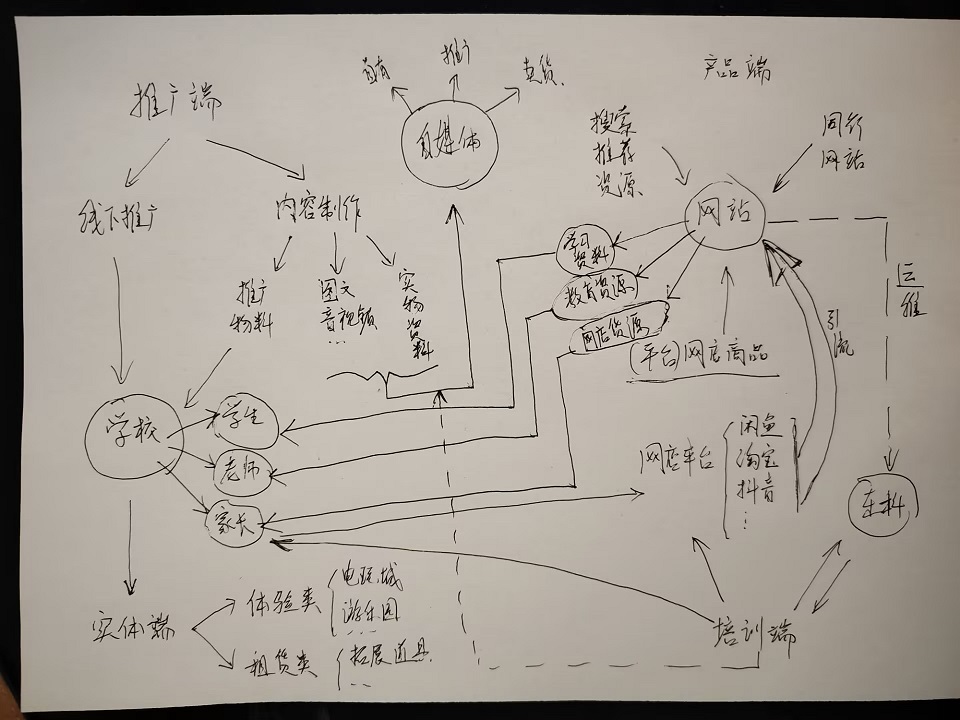 推广
卖货
产品端
推广端
自媒体
搜索
推荐
资源
同行
网站
线下推广
内容制作
网站
学习
资料
推广
物料
图文
音视频
...
实物资料
教育资源
网店货源
(平台)网店商品
引流
学校
学生
老师
家长
网店平台
闲鱼
淘宝
抖音
...
实体端
体验类
游乐园
...
租赁类
拓展道具
...
培训端